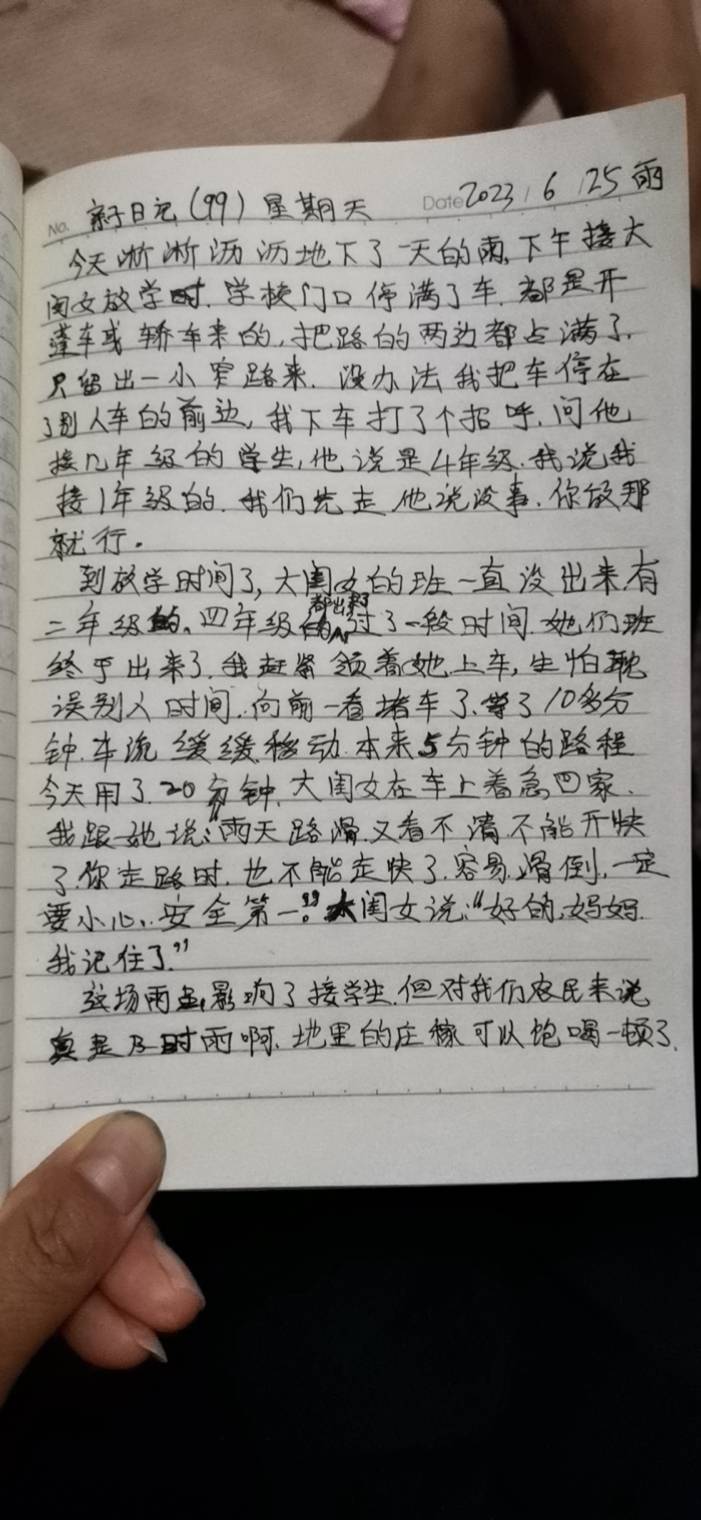 No. 亲子日记(99)星期天 Date 2023/6/25 雨
今天淅淅沥沥地下了一天的雨,下午接大
闺女放学时.学校门口停满了车.都是开
篷车或轿车来的,把路的两边都占满了.
只留出一小窄路来.没办法我把车停在
了别人车的前边,我下车打了个招呼.问他
接几年级的学生,他说是4年级.我说我
接1年级的.我们先走他说没事.你放那
就行。
到放学时间了,大闺女的班一直没出来.有
二年级的、四年级的都出来了过了一段时间.她们班
终于出来了.我赶紧领着她上车,生怕耽
误别人时间.向前一看堵车了.等了10多分
钟.车流缓缓移动.本来5分钟的路程
今天用了.20分钟.大闺女在车上着急回家.
我跟她说:“雨天路滑.又看不清.不能开快
了.你走路时.也不能走快了.容易滑倒.一定
要小心.安全第一。”大闺女说:“好的,妈妈.
我记住了.”
这场雨虽影响了接学生.但对我们农民来说
真是及时雨啊.地里的庄稼可以饱喝一顿了.